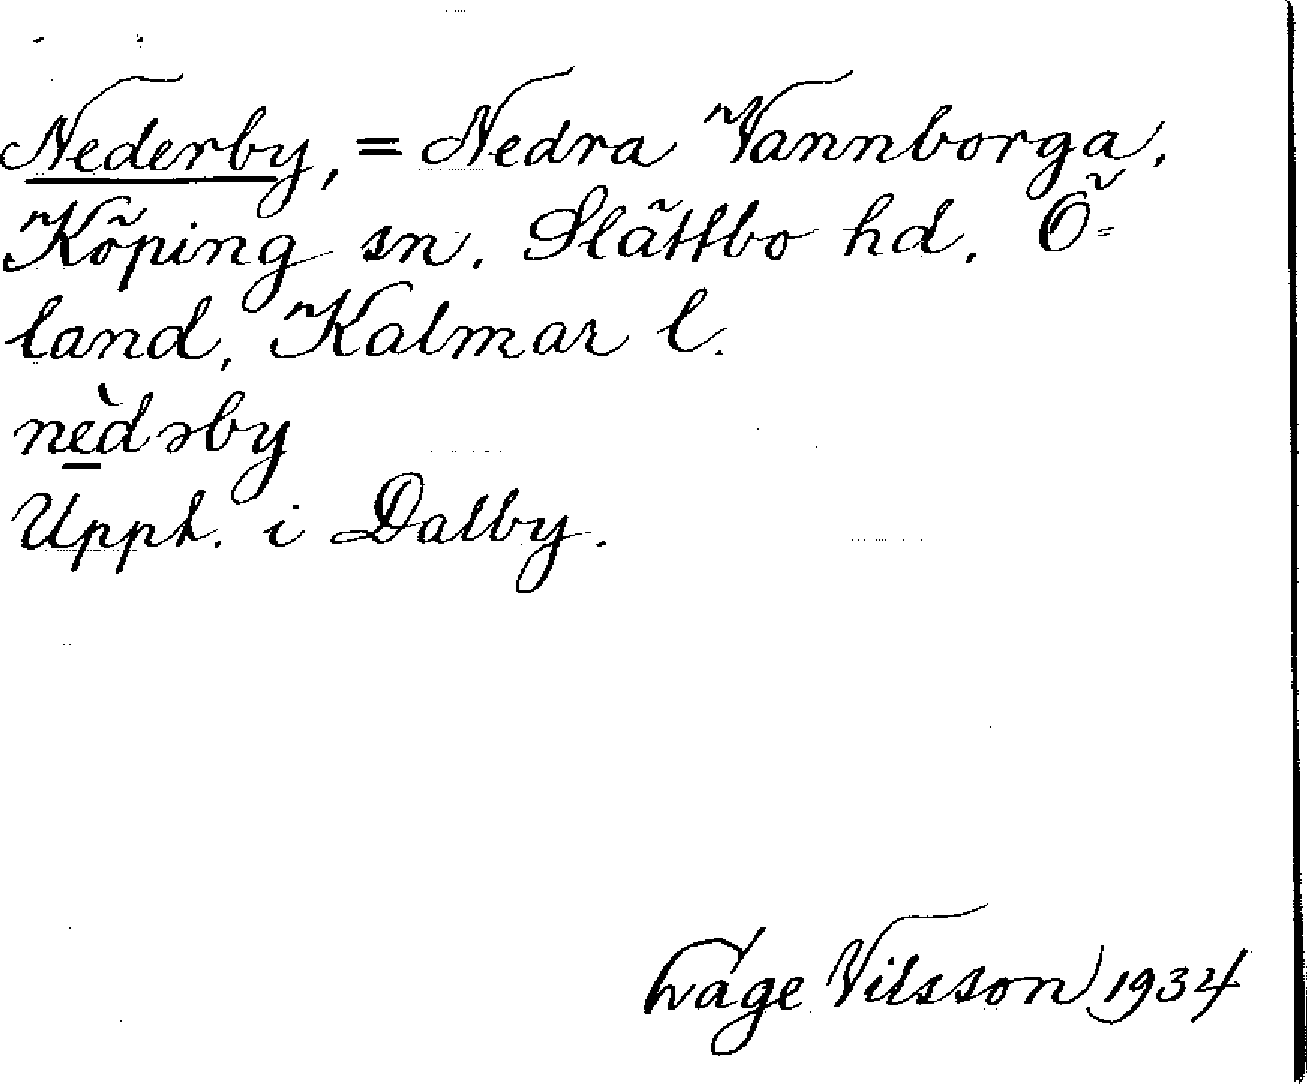 Nederby, = Nedra Vannborga,
Köping sn. Slättbo hd. Ö-
land, Kalmar l.
nèdəby
Uppt. i Dalby.
Åge Nilsson 1934